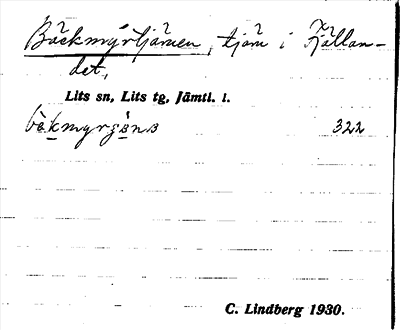 Bäckmyrtjärnen, tjärn i Kälan-
det,
Lits sn, Lits tg, Jämtl. l.
322
C. Lindberg 1930.